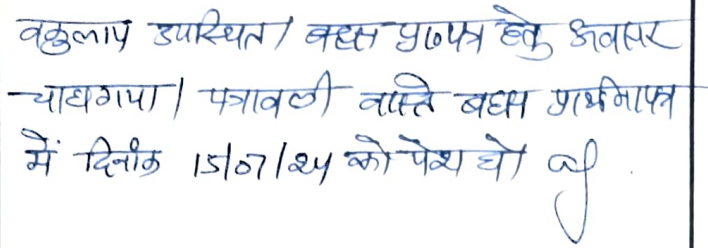 वकुलाय उपस्थित। बहस प्रा०पत्र हेतु अवसर
चाहा गया। पत्रावली वास्ते बहस प्रार्थनापत्र
में दिनाँक 15/07/24 को पेश हो